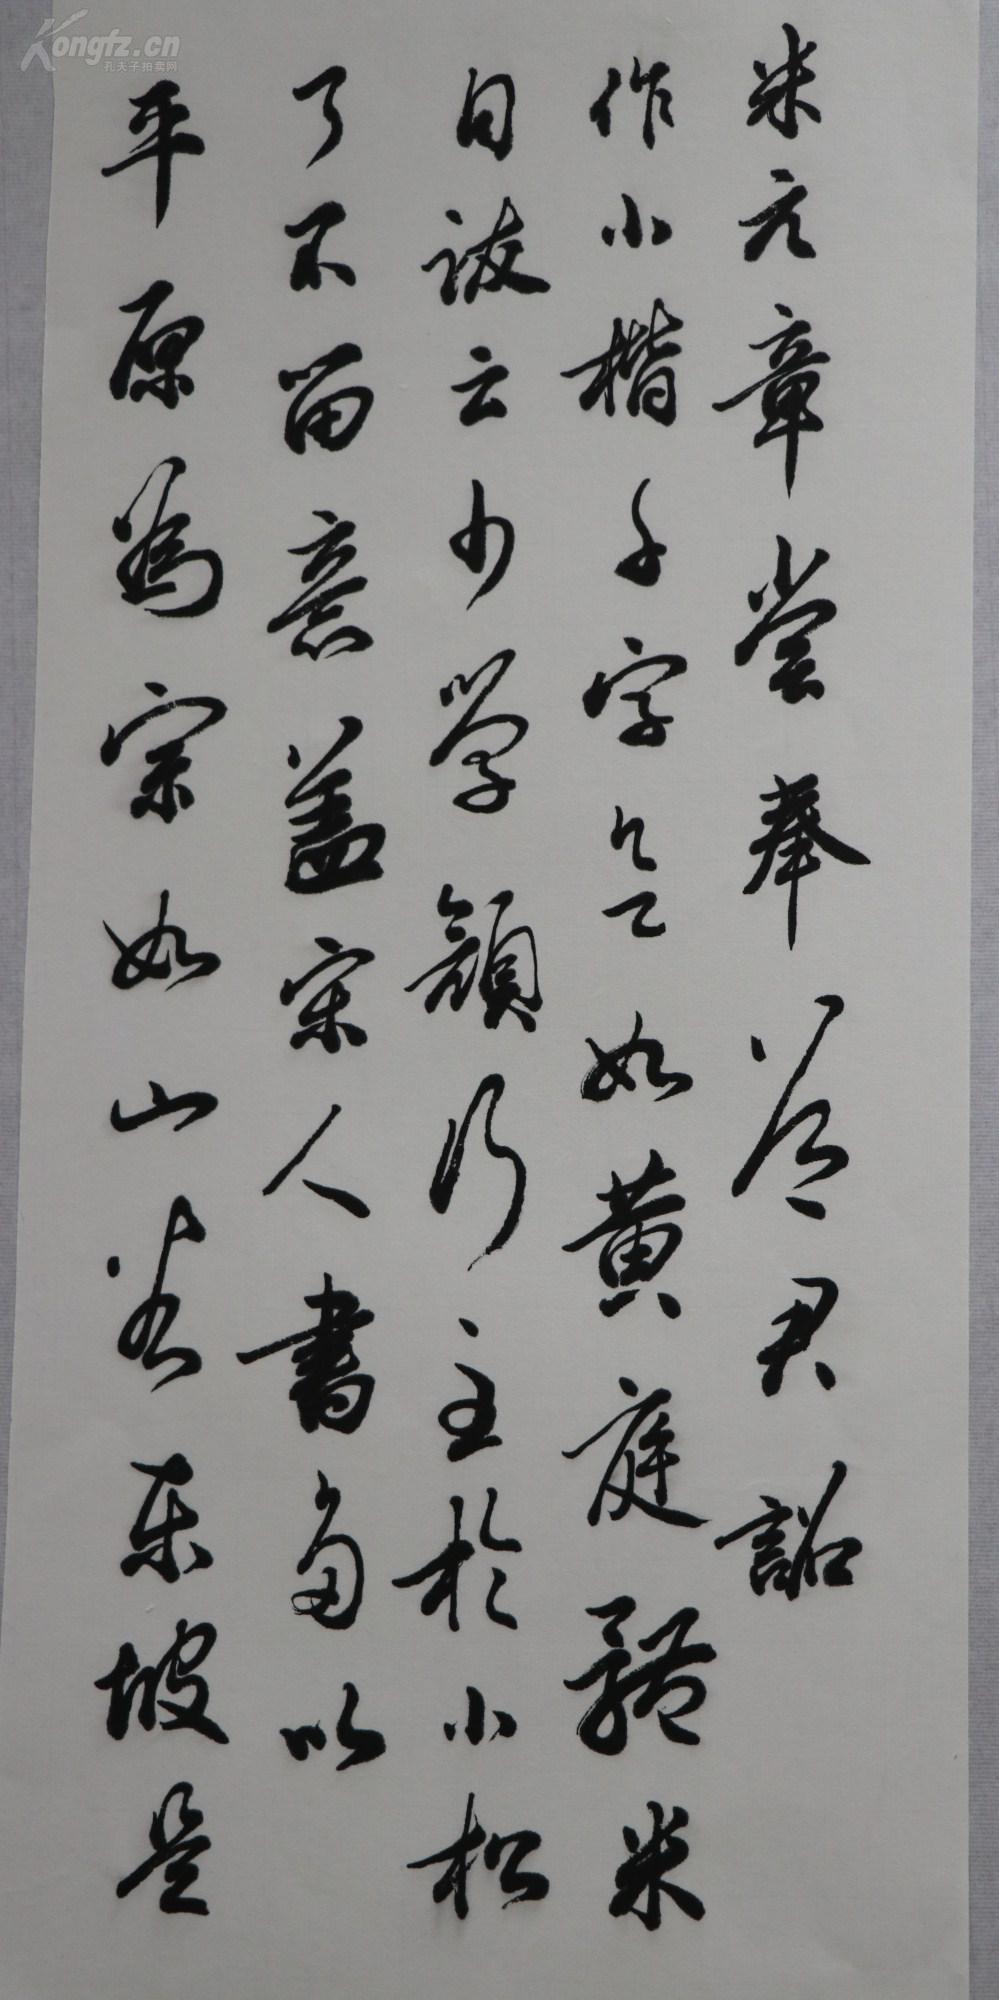 米元章尝奉道君詔
作小楷千字欲如黄庭體米
自跋云少學顏行至於小楷
了不留意盖宋人書多以
平原爲宗如山谷東坡是
Kongfz.cn
孔夫子拍卖网